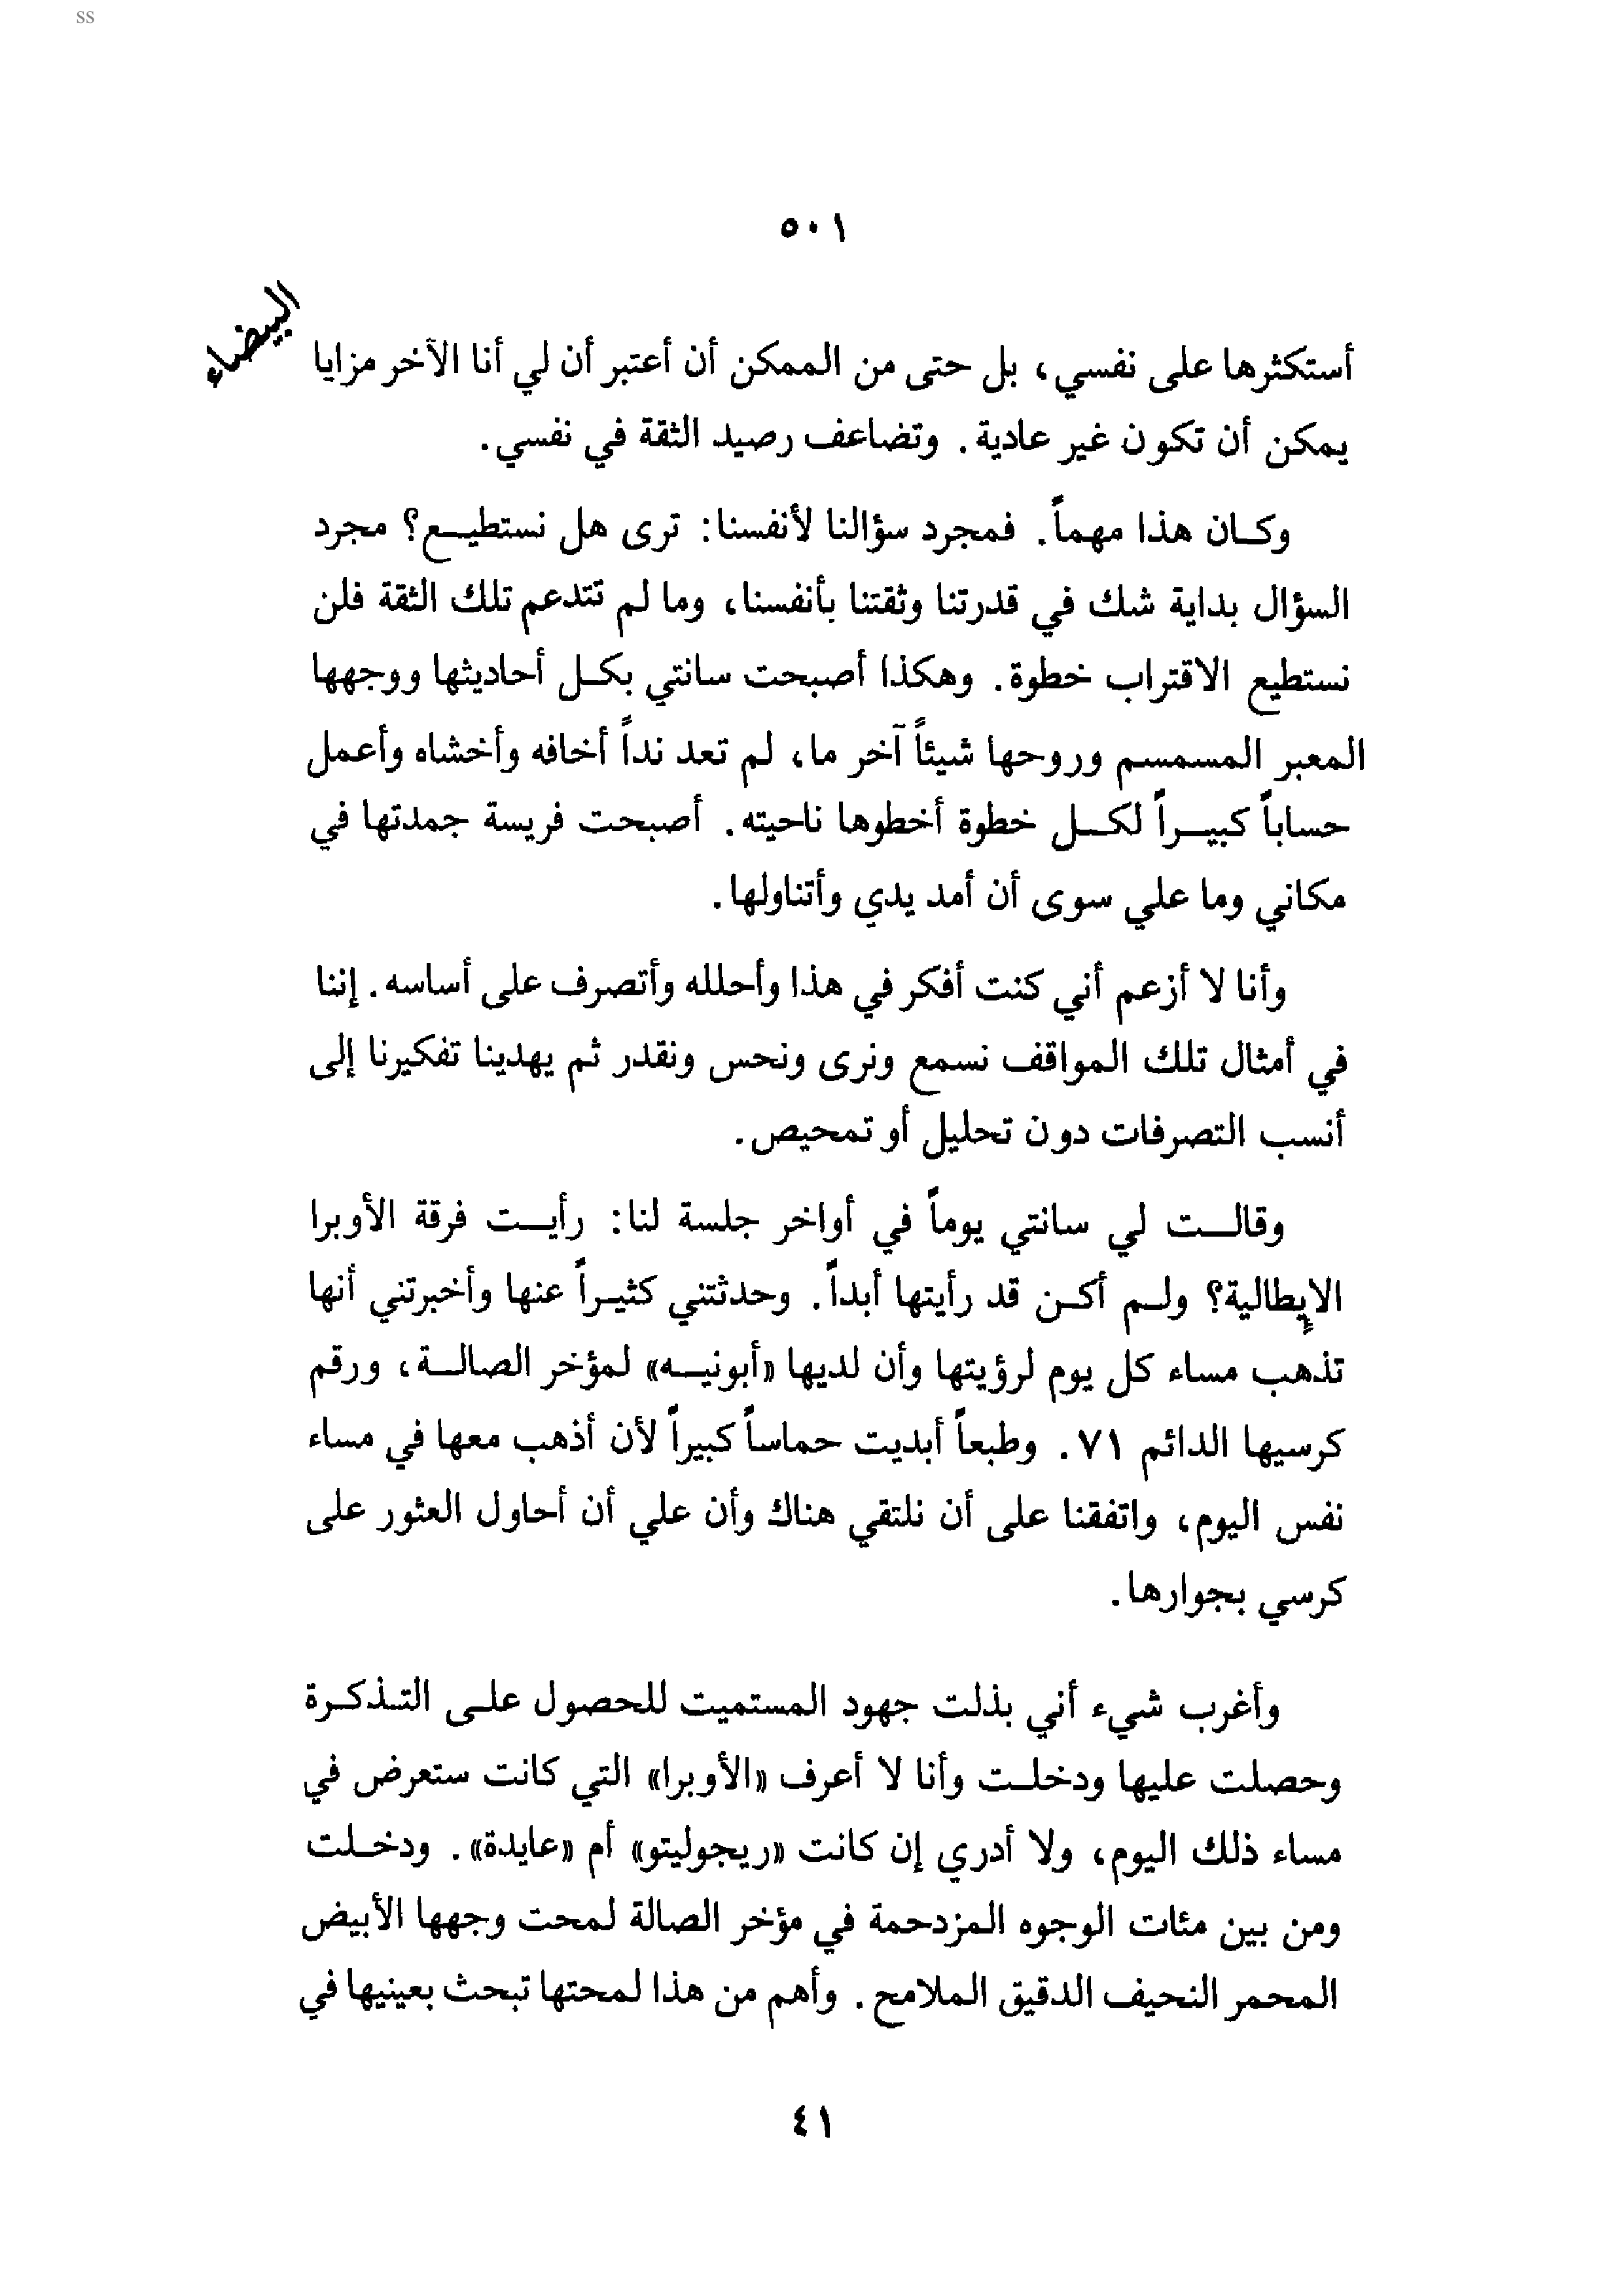 ss
٥٠١
البيضاء
أستكثرها على نفسي، بل حتى من الممكن أن أعتبر أن لي أنا الأخر مزايا
يمكن أن تكون غير عادية. وتضاعف رصيد الثقة في نفسي.
وكـان هذا مهماً. فمجرد سؤالنا لأنفسنا: ترى هل نستطيـع؟ مجرد
السؤال بداية شك في قدرتنا وثقتنا بأنفسنا، وما لم تتدعم تلك الثقة فلن
نستطيع الاقتراب خطوة. وهكذا أصبحت سانتي بكـل أحاديثها ووجهها
المعبر المسمسم وروحها شيئاً آخر ما، لم تعد نداً أخافه وأخشاه وأعمل
حساباً كبيـراً لكـل خطوة أخطوها ناحيته. أصبحت فريسة جمدتها في
مكاني وما علي سوى أن أمد يدي وأتناولها.
وأنا لا أزعم أني كنت أفكر في هذا وأحلله وأتصرف على أساسه. إننا
في أمثال تلك المواقف نسمع ونرى ونحس ونقدر ثم يهدينا تفكيرنا إلى
أنسب التصرفات دون تحليل أو تمحيص.
وقالـت لي سانتي يوماً في أواخر جلسة لنا: رأيـت فرقة الأوبرا
الإيطالية؟ ولـم أكـن قد رأيتها أبداً. وحدثتني كثيـراً عنها وأخبرتني أنها
تذهب مساء كل يوم لرؤيتها وأن لديها «أبونيـه» لمؤخر الصالـة، ورقم
كرسيها الدائم ٧١. وطبعاً أبديت حماساً كبيراً لأن أذهب معها في مساء
نفس اليوم، واتفقنا على أن نلتقي هناك وأن علي أن أحاول العثور على
كرسي بجوارها.
وأغرب شيء أني بذلت جهود المستميت للحصول علـى التـذكـرة
وحصلت عليها ودخلـت وأنا لا أعرف «الأوبرا» التي كانت ستعرض في
مساء ذلك اليوم، ولا أدري إن كانت «ريجوليتو» أم «عايدة». ودخـلت
ومن بين مئات الوجوه المزدحمة في مؤخر الصالة لمحت وجهها الأبيض
المحمر النحيف الدقيق الملامح. وأهم من هذا لمحتها تبحث بعينيها في
٤١